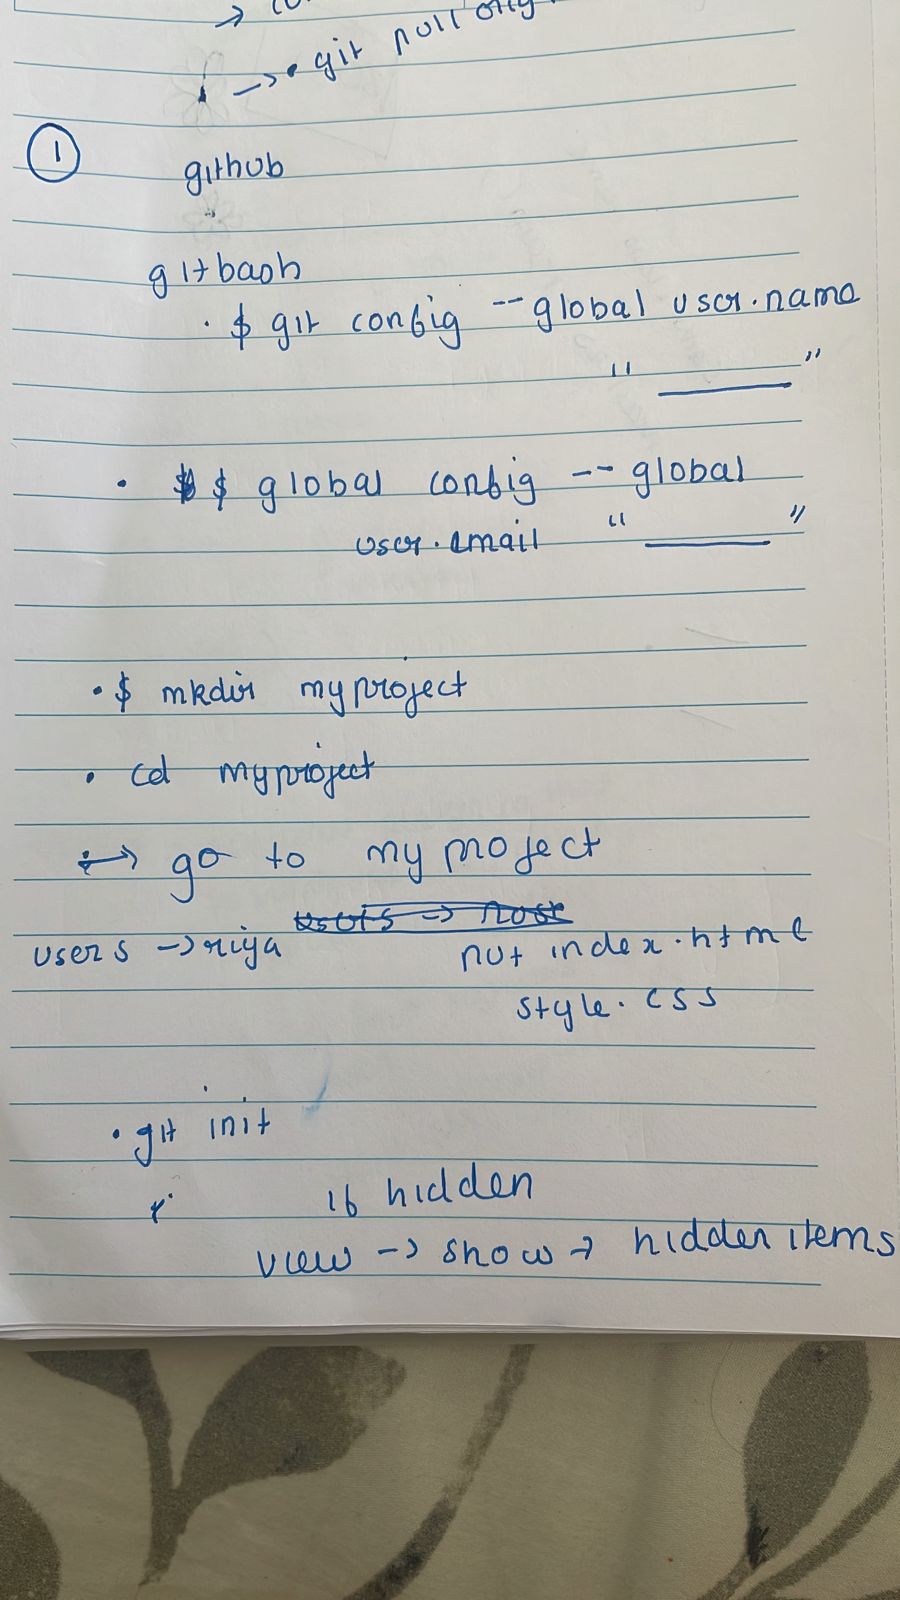 →
→ • git pull orig
1
github
gitbash
• $ git config -- global user.name
" ____ "
• $ global config -- global
user.email " ____ "
• $ mkdir myproject
• cd myproject
→ go to my project
users → riya
put index.html
style.css
• git init
if hidden
view → show → hidden items